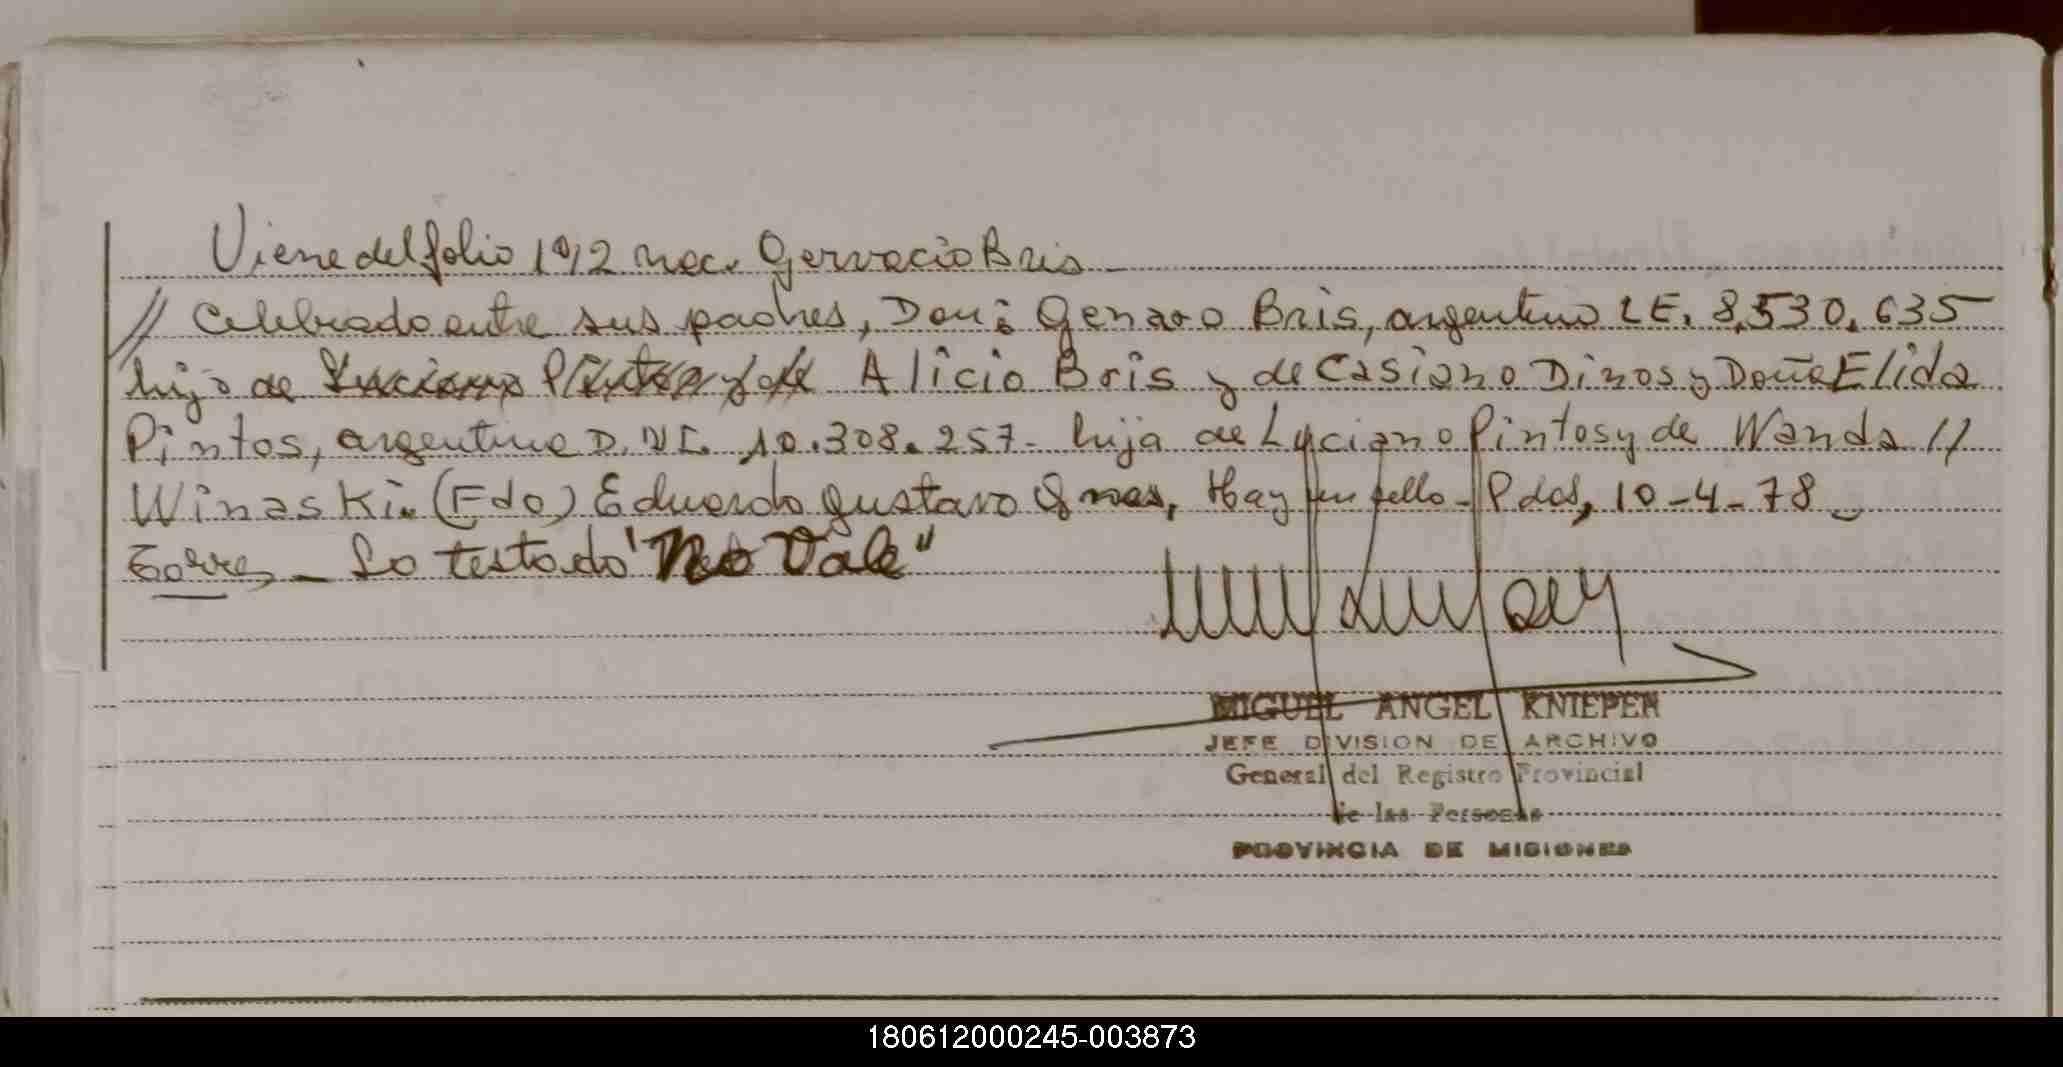 Viene del folio 192 nac. Gervacio Bris
// Celebrado entre sus padres, Don: Genaro Bris, argentino LE. 8.530.635
hijo de Luciano Pintos y de Alicio Bris y de Casiana Dinos y Doña Elida
Pintos, argentina D.N.I. 10.308.257- hija de Luciano Pintos y de Wanda //
Winaski. (Fdo) Eduardo Gustavo Hay un sello - Pdas, 10-4-78
Torres - Lo testado "No Vale"
MIGUEL ANGEL KNIEPER
JEFE DIVISION DE ARCHIVO
General del Registro Provincial
de las Personas
PROVINCIA DE MISIONES
180612000245-003873